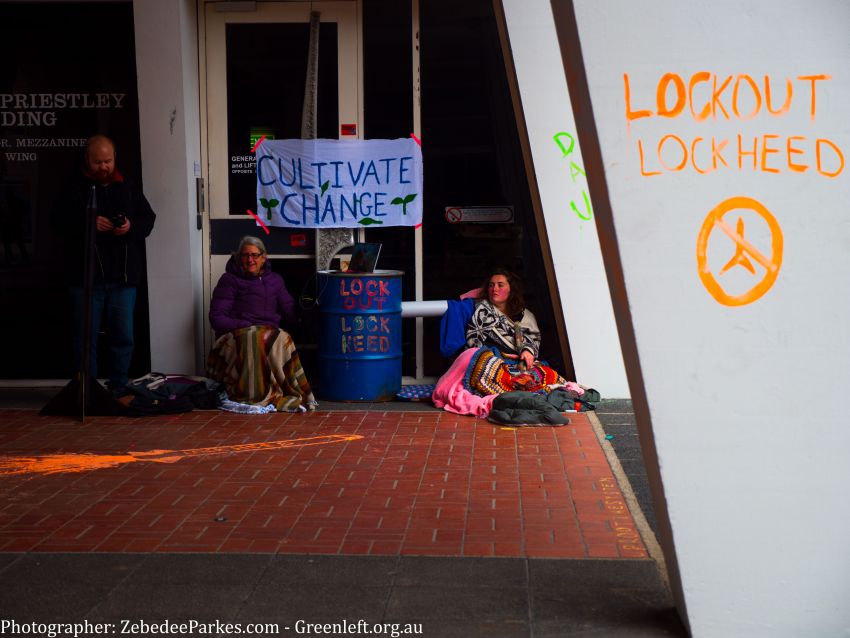 PRIESTLEY
DING
OR, MEZZANINE
WING
GENERAL
and LIFT
OPPOSITE
CULTIVATE
CHANGE
LOCK
OUT
LOCK
HEED
LOCKOUT
LOCKHEED
Photographer: ZebedeeParkes.com - Greenleft.org.au